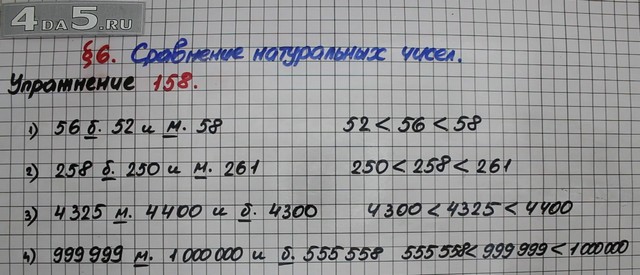 4DA5.RU
§6. Сравнение натуральных чисел.
Упражнение 158.
1) 56 б. 52 и м. 58 52 < 56 < 58
2) 258 б. 250 и м. 261 250 < 258 < 261
3) 4325 м. 4400 и б. 4300 4300 < 4325 < 4400
4) 999 999 м. 1 000 000 и б. 555 558 555 558 < 999 999 < 1 000 000